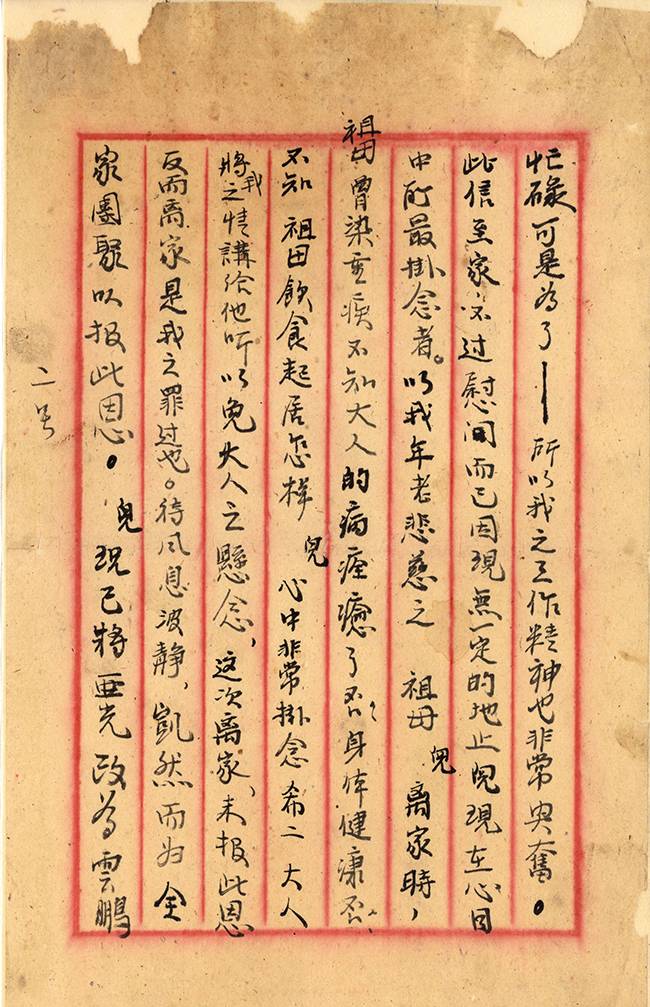 忙碌可是為了——所以我之工作精神也非常興奮。
此信至家，不过慰问而已因現無一定的地止兒現在心目
中所最掛念者。以我年老悲慈之 祖母 兒离家時，
祖母曾染重疾不知大人的病痊癒了否，身体健康否，
不知 祖母飲食起居怎样 兒心中非常掛念希二大人
將我之情講給他听以免大人之懸念，这次离家，未报此恩
反而离家是我之罪过也。待风息波静，凱然而归全
家團聚以报此恩。兒現已將亜光改为雲鵬
二号